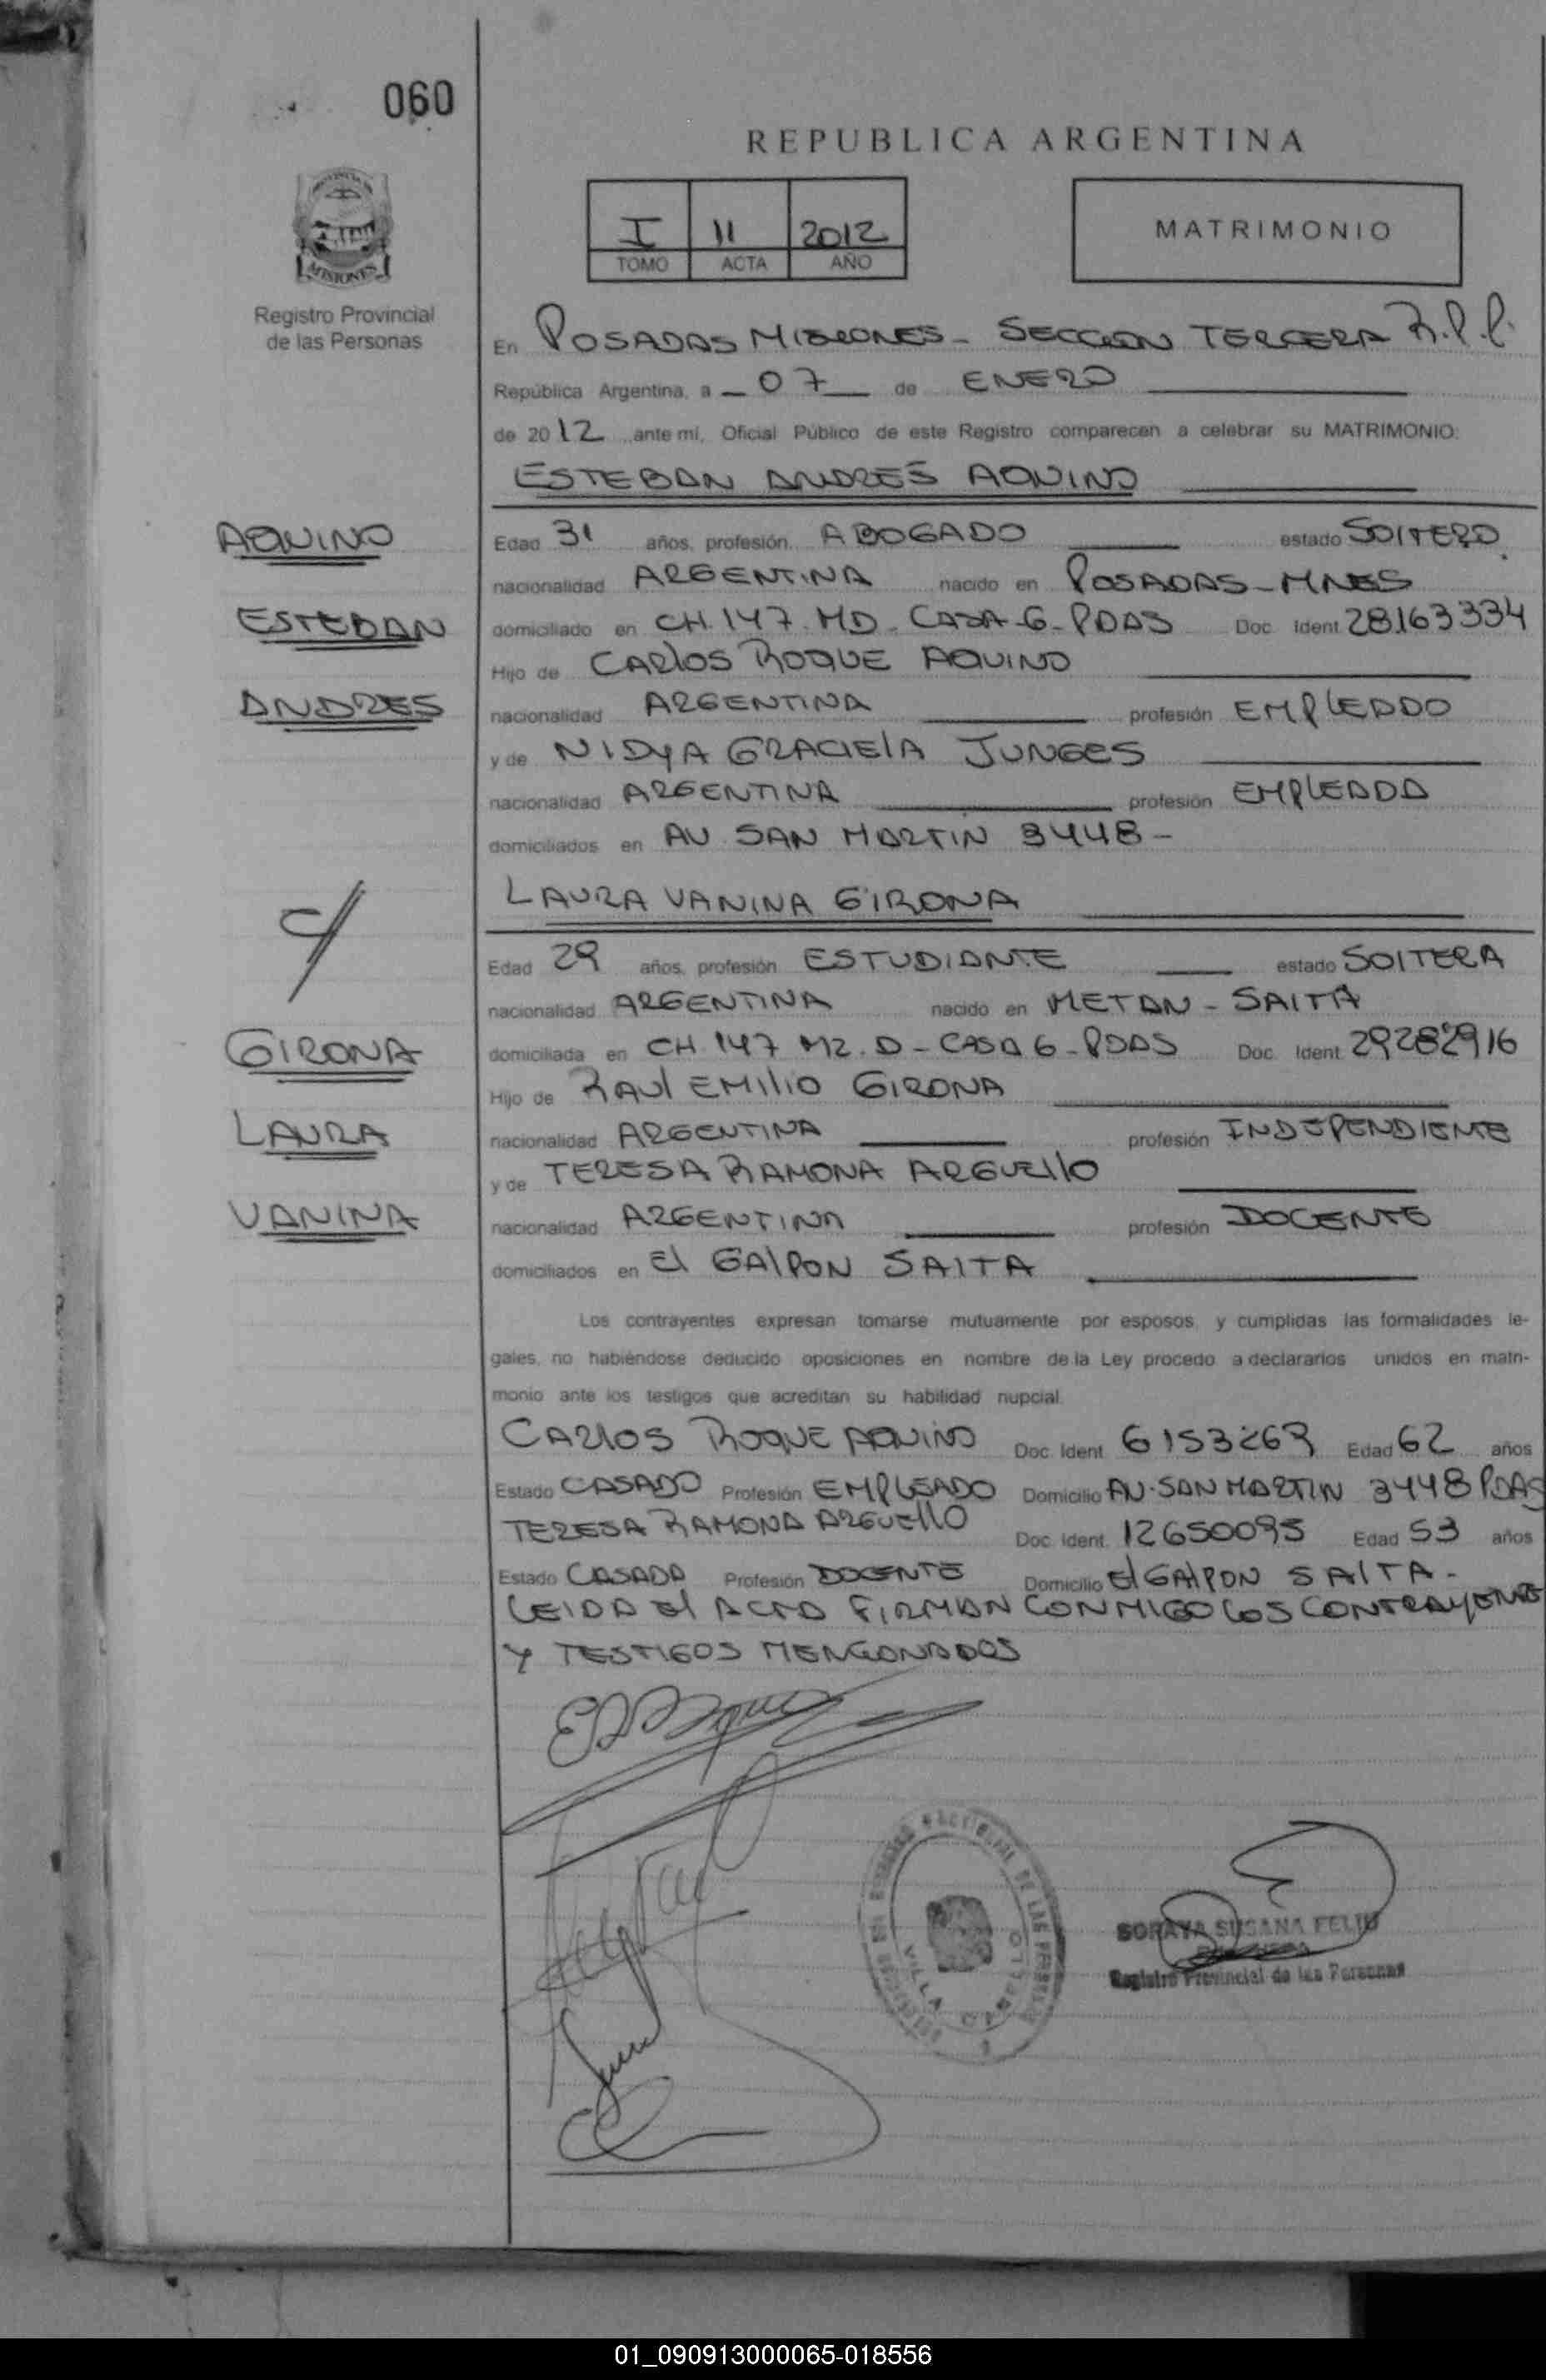 060
REPUBLICA ARGENTINA
PROVINCIA DE
MISIONES
I 11 2012
TOMO ACTA AÑO
MATRIMONIO
Registro Provincial
de las Personas
En POSADAS MISIONES - SECCION TERCERA R.P.P.
República Argentina, a 07 de ENERO
de 2012 ante mi, Oficial Público de este Registro comparecen a celebrar su MATRIMONIO:
ESTEBAN ANDRES AQUINO
AQUINO
ESTEBAN
ANDRES
Edad 31 años, profesión ABOGADO estado SOLTERO
nacionalidad ARGENTINA nacido en POSADAS - MNES
domiciliado en CH. 147. MD - CASA - 6 - PDAS Doc. Ident. 28.163334
Hijo de CARLOS ROQUE AQUINO
nacionalidad ARGENTINA profesión EMPLEADO
y de NIDYA GRACIELA JUNGES
nacionalidad ARGENTINA profesión EMPLEADA
domiciliados en AV. SAN MARTIN 3448 -
LAURA VANINA GIRONA
c/
GIRONA
LAURA
VANINA
Edad 29 años, profesión ESTUDIANTE estado SOLTERA
nacionalidad ARGENTINA nacido en METAN - SALTA
domiciliada en CH. 147 MZ. D - CASA 6 - PDAS Doc. Ident. 29282916
Hijo de RAUL EMILIO GIRONA
nacionalidad ARGENTINA profesión INDEPENDIENTE
y de TERESA RAMONA ARGUELLO
nacionalidad ARGENTINA profesión DOCENTE
domiciliados en El GALPON SALTA
Los contrayentes expresan tomarse mutuamente por esposos, y cumplidas las formalidades le-
gales, no habiéndose deducido oposiciones en nombre de la Ley procedo a declararlos unidos en matri-
monio ante los testigos que acreditan su habilidad nupcial.
CARLOS ROQUE AQUINO Doc. Ident. 6153269 Edad 62 años
Estado CASADO Profesión EMPLEADO Domicilio AV. SAN MARTIN 3448 PDAS
TERESA RAMONA ARGUELLO Doc. Ident. 12650095 Edad 53 años
Estado CASADA Profesión DOCENTE Domicilio El GALPON SALTA -
LEIDA El ACTA FIRMAN CONMIGO LOS CONTRAYENTES
Y TESTIGOS MENCIONADOS
SORAYA SUSANA FELIU
Registro Provincial de las Personas
01_090913000065-018556